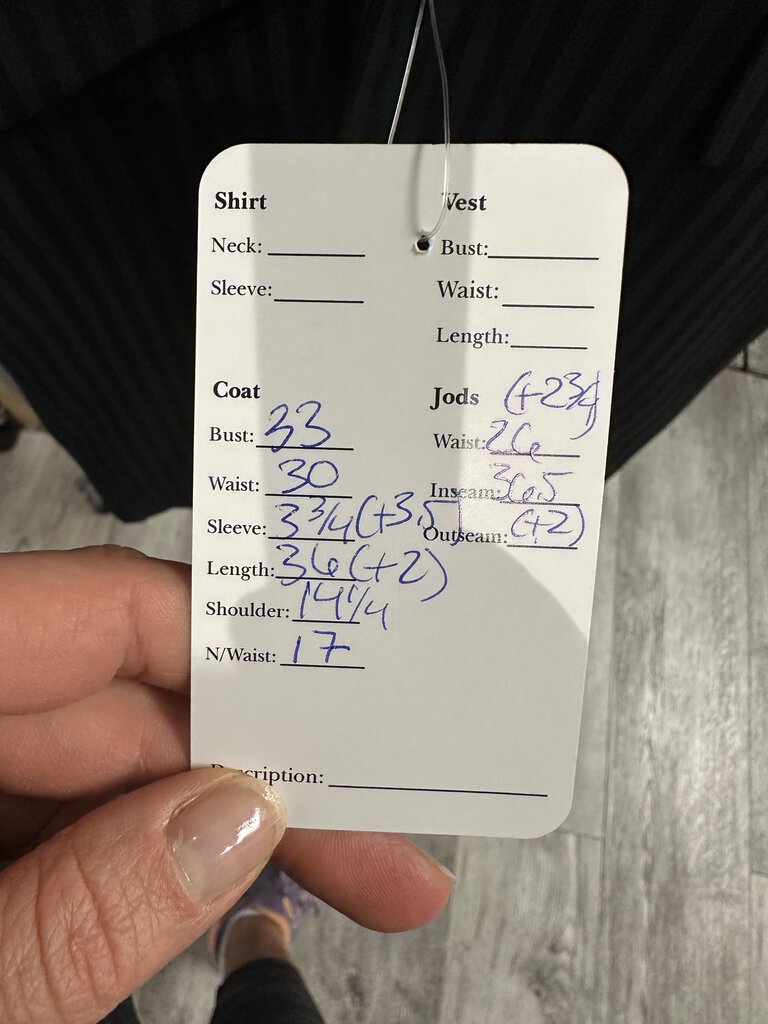 Shirt
Neck:
Sleeve:
Vest
Bust:
Waist:
Length:
Coat
Bust: 33
Waist: 30
Sleeve: 3 3/4 (+3.5)
Length: 36 (+2)
Shoulder: 14 1/4
N/Waist: 17
Jods (+2 3/4)
Waist: 26
Inseam: 36.5
Outseam: (+2)
Description: